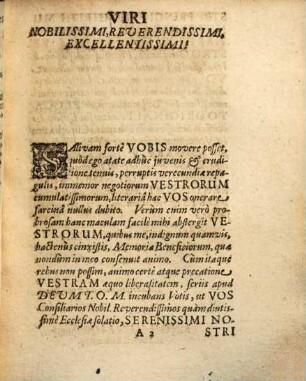 VIRI
NOBILISSIMI, REVERENDISSIMI,
EXCELLENTISSIMI!
SAlivam fortè VOBIS movere posset,
quòd ego ætate adhûc juvenis & erudi-
tione tenuis, perruptis verecundiæ repa-
gulis, immemor negotiorum VESTRORUM
cumulatissimorum, literariâ hac VOS onerare
sarcinâ nullus dubito. Verùm enim verò pro-
brosam hanc maculam facilè mihi abstergit VE-
STRORUM, quibus me, indignum quamvis,
hactenùs cinxistis, Memoria Beneficiorum, quæ
nondum in meo consenuit animo. Cum itaque
rebus non possim, animo certè atque precatione
VESTRAM æquo liberalitatem, seriis apud
DEUM T. O. M. incubans Votis, ut VOS
Consiliarios Nobil. Reverendissimos quàm diutis-
simè Ecclesiæ solatio, SERENISSIMI NO-
A 2 STRI